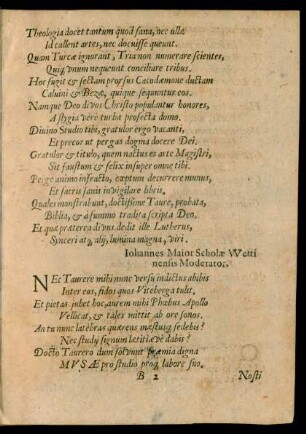 Theologia docet tantum quod sana, nec ulla
Id callent artes, nec docuisse queunt.
Quam Turcæ ignorant, Tria non numerare scientes,
Quiq; unum nequeunt conciliare tribus.
Hoc fugit & sectam prorsus Cacodæmone ductam
Calvini & Bezæ, quique sequuntur eos.
Namque Deo divos Christo populantur honores,
A stygia vere turba profecta domo.
Divino Studio tibi, gratulor ergo vacanti,
Et precor ut pergas dogma docere Dei.
Gratulor & titulo, quem nactus es arte Magistri,
Sit faustum & felix insuper omne tibi.
Perge animo infracto, cœptum decurrere munus,
Et sacris sanis invigilare libris,
Quales monstrabunt, doctissime Taure, probata,
Biblia, & à summo tradita scripta Deo.
Et quæ præterea divus dedit ille Lutherus,
Synceri atq; alij, lumina magna, viri.
Iohannes Maior Scholæ Wetti
nensis Moderator.
NEc Taurere mihi nunc versu indictus abibis
Inter eos, fidos quos Viteberga tulit,
Et pietas jubet hoc, aurem mihi Phœbus Apollo
Vellicat, & tales mittit ab ore sonos.
An tu nunc latebras quærens mæstusq; sedebis?
Nec studij signum letitiæve dabis?
Docto Taurero dum solvunt præmia digna
MVSÆ pro studio proq; labore suo.
B 2 Nosti